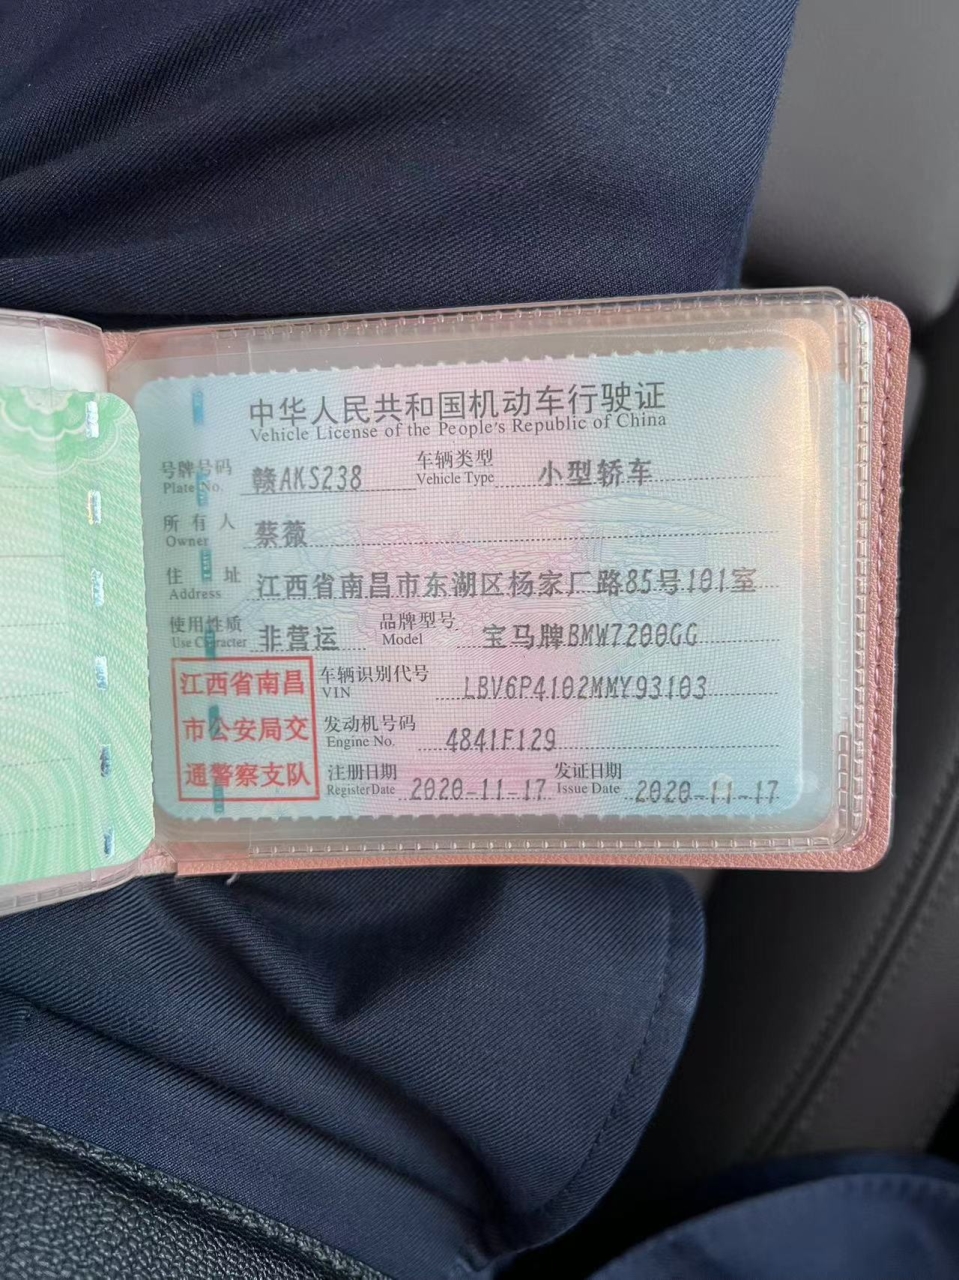 中华人民共和国机动车行驶证
Vehicle License of the People's Republic of China
号牌号码 Plate No. 赣AKS238 车辆类型 Vehicle Type 小型轿车
所有人 Owner 蔡薇
住址 Address 江西省南昌市东湖区杨家厂路85号101室
使用性质 Use Character 非营运 品牌型号 Model 宝马牌BMW7200GG
江西省南昌
市公安局交
通警察支队
车辆识别代号 VIN LBV6P4102MMY93103
发动机号码 Engine No. 4841F129
注册日期 Register Date 2020-11-17 发证日期 Issue Date 2020-11-17